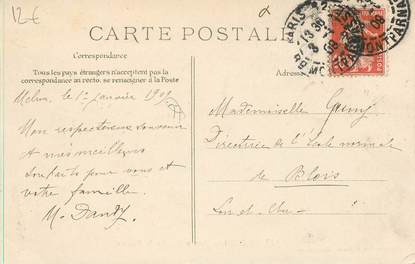 12€
CARTE POSTALE
Correspondance
Tous les pays étrangers n'acceptent pas la
correspondance au recto, se renseigner à la Poste
Adresse
Melun, le 1er janvier 1909
Mon respectueux souvenir
et mes meilleurs
souhaits pour vous et
votre famille.
M. Dandy
Mademoiselle
Directrice de l'école normale
de Blois
Loir-et-Cher
PARIS